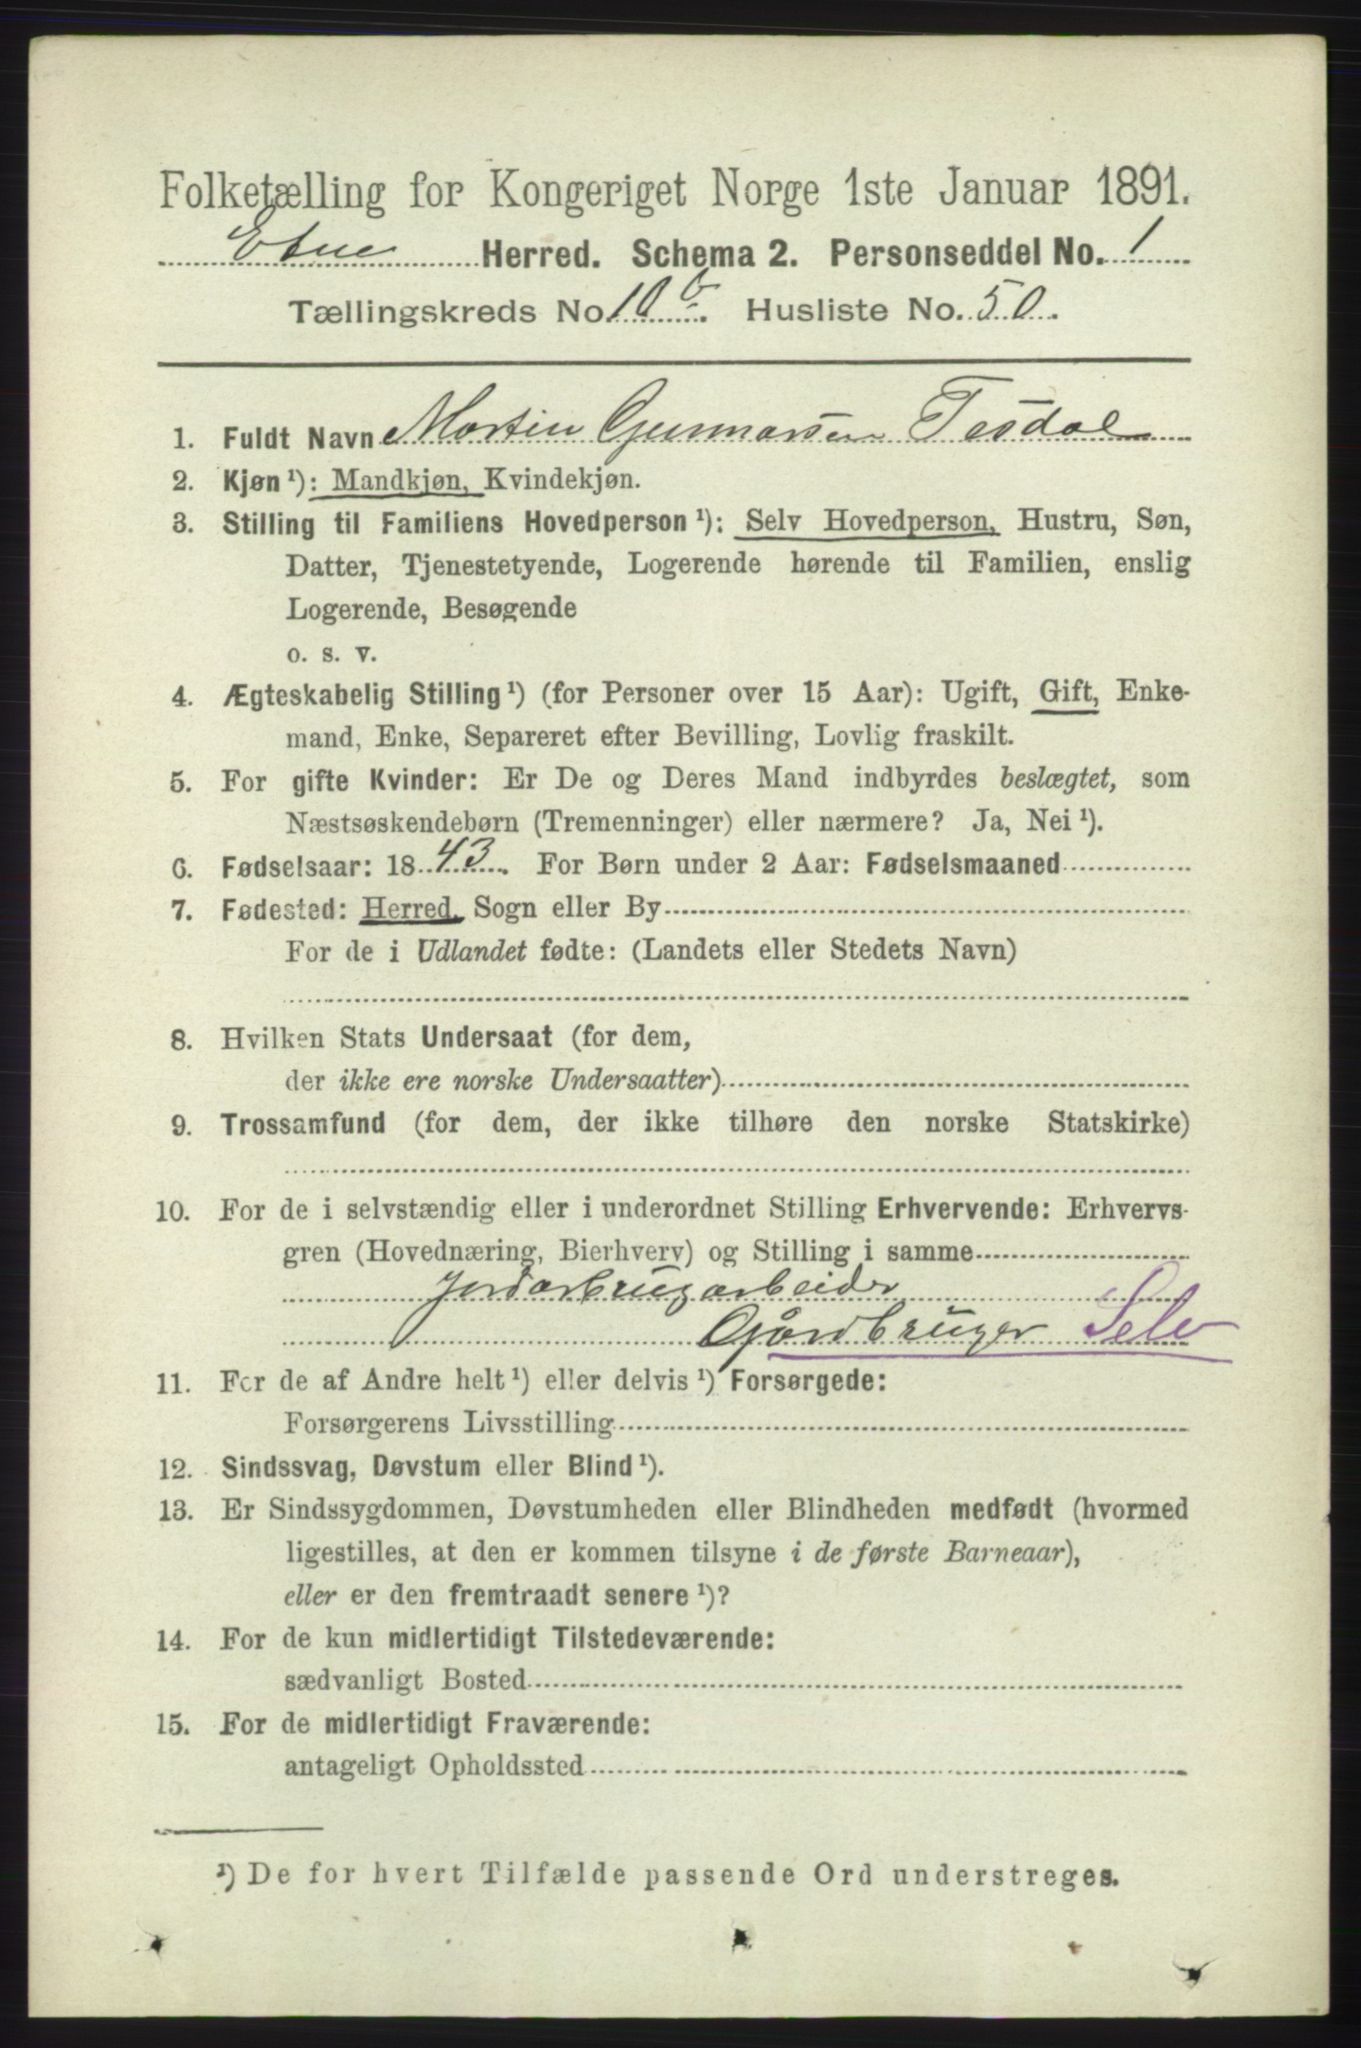 Folketælling for Kongeriget Norge 1ste Januar 1891.
Etne Herred. Schema 2. Personseddel No. 1
Tællingskreds No. 10 b. Husliste No. 50.
1. Fuldt Navn Martin Gunnarsen Tesdal
2. Kjøn ¹): Mandkjøn, Kvindekjøn.
3. Stilling til Familiens Hovedperson ¹): Selv Hovedperson, Hustru, Søn,
Datter, Tjenestetyende, Logerende hørende til Familien, enslig
Logerende, Besøgende
o. s. v.
4. Ægteskabelig Stilling ¹) (for Personer over 15 Aar): Ugift, Gift, Enke-
mand, Enke, Separeret efter Bevilling, Lovlig fraskilt.
5. For gifte Kvinder: Er De og Deres Mand indbyrdes beslægtet, som
Næstsøskendebørn (Tremenninger) eller nærmere? Ja, Nei ¹).
6. Fødselsaar: 1843. For Børn under 2 Aar: Fødselsmaaned
7. Fødested: Herred, Sogn eller By
For de i Udlandet fødte: (Landets eller Stedets Navn)
8. Hvilken Stats Undersaat (for dem,
der ikke ere norske Undersaatter)
9. Trossamfund (for dem, der ikke tilhøre den norske Statskirke)
10. For de i selvstændig eller i underordnet Stilling Erhvervende: Erhvervs-
gren (Hovednæring, Bierhverv) og Stilling i samme
Jordarbrugarbeider
Gårdbruger Selv
11. For de af Andre helt ¹) eller delvis ¹) Forsørgede:
Forsørgerens Livsstilling
12. Sindssvag, Døvstum eller Blind ¹).
13. Er Sindssygdommen, Døvstumheden eller Blindheden medfødt (hvormed
ligestilles, at den er kommen tilsyne i de første Barneaar),
eller er den fremtraadt senere ¹)?
14. For de kun midlertidigt Tilstedeværende:
sædvanligt Bosted
15. For de midlertidigt Fraværende:
antageligt Opholdssted
¹) De for hvert Tilfælde passende Ord understreges.